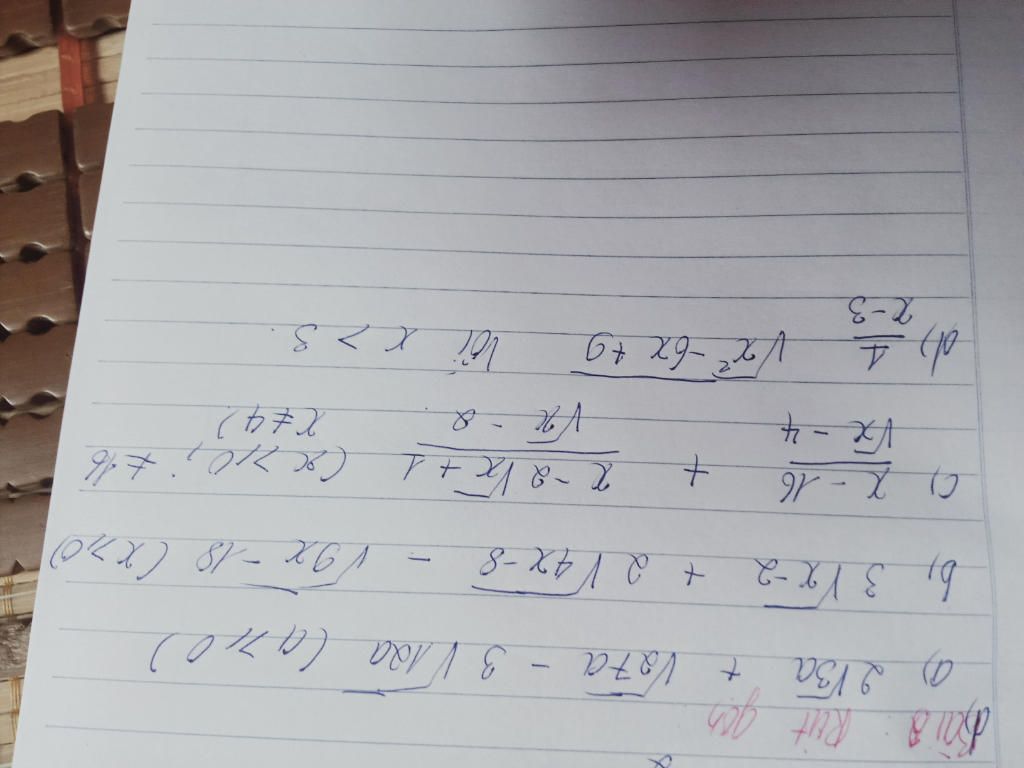 Bài 8 Rút gọn
a) 2√3a + √27a - 3√12a (a ≥ 0)
b, 3√x-2 + 2√4x-8 - √9x-18 (x ≥ 0)
c, x - 16 / √x - 4 + x - 2√x + 1 / √x - 2 (x ≥ 0, ≠ 16
x ≠ 4)
d) 1 / x-3 √x² - 6x + 9 với x > 3.